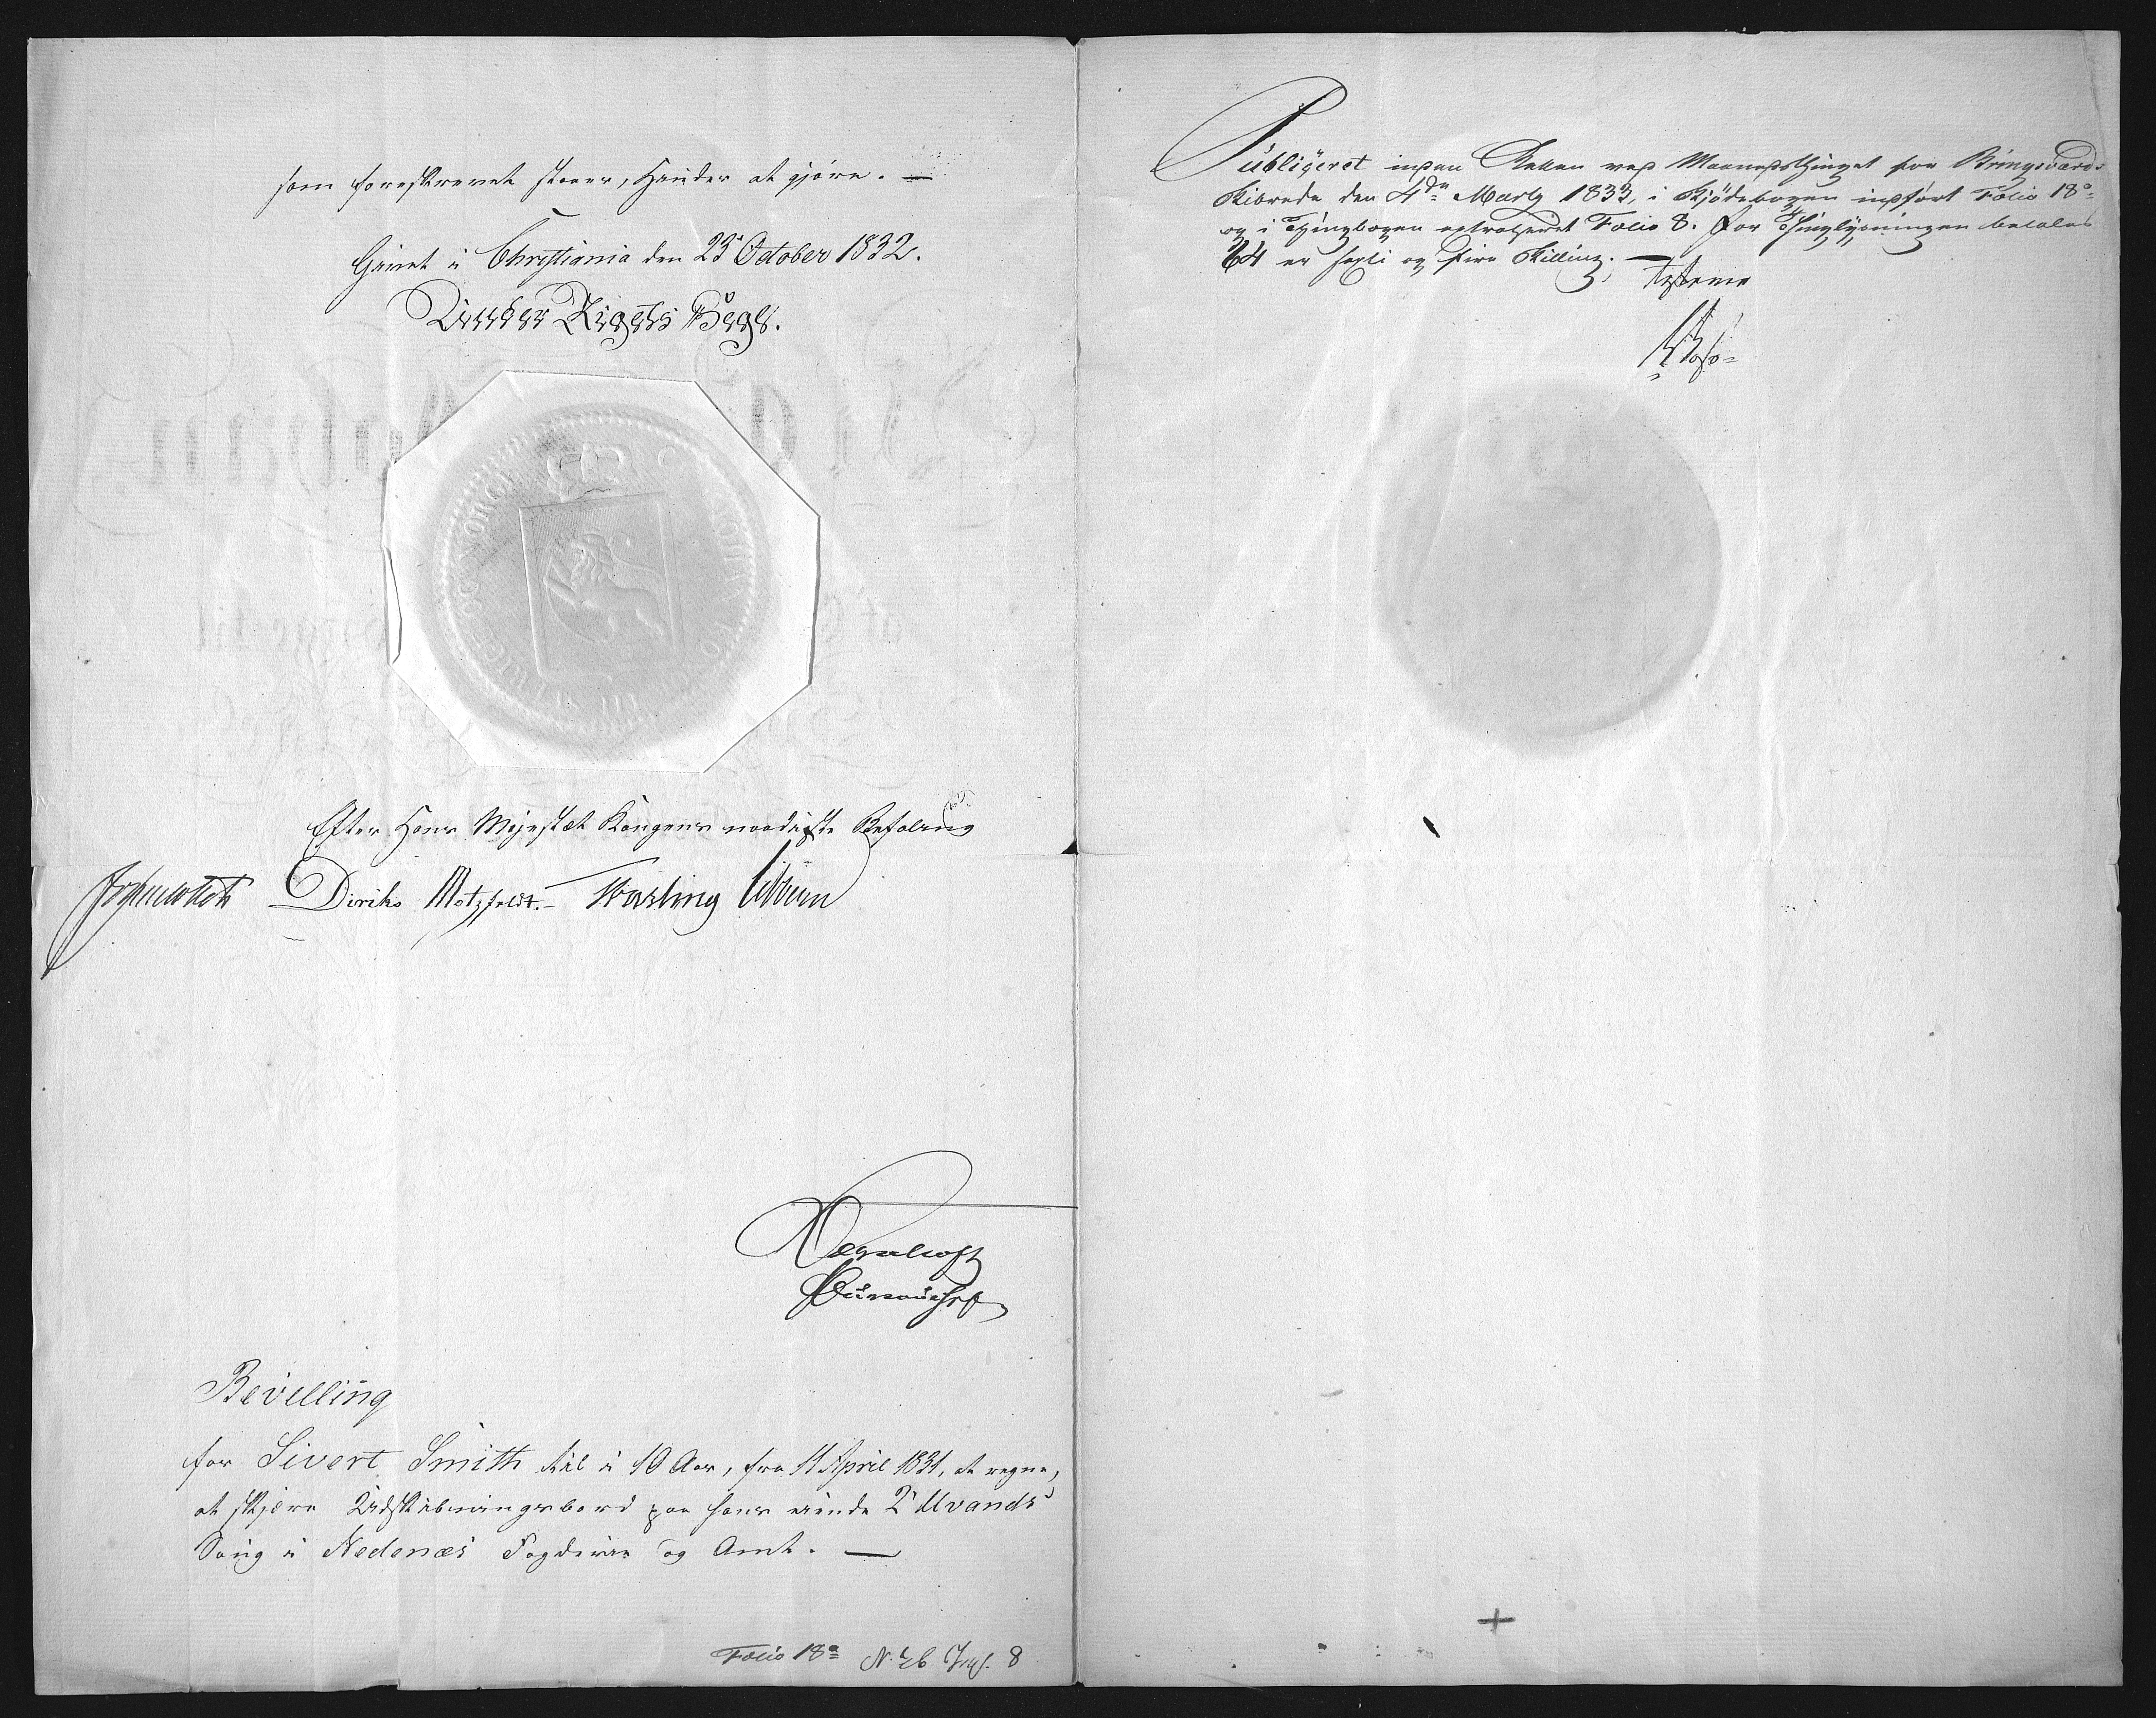 som foreskrevet staaer, Hinder at gjöre. —
Givet i Christiania den 23 October 1832.
Under Rigets Segl.
Efter Hans Majestæt Kongens naadigste Befaling
Diriks Motzfeldt. Vogt
Bevilling
for Sivert Smith til i 10 Aar, fra 11 April 1831, at regne,
at skjære Udskibningsbord paa hans eiende Vands
Saug i Nedenæs Fogderie og Amt. —
Folio 18a No 26 8
Publiceret inden Retten ved Maanedsthinget for Bringsværds
Skibrede den 4de Marty 1833, i Skjödebogen indfört Folio 18a
og i Thingbogen extraheret Folio 8. For Thinglysningen betales
64 er sexti og fire Skilling. — Testerer